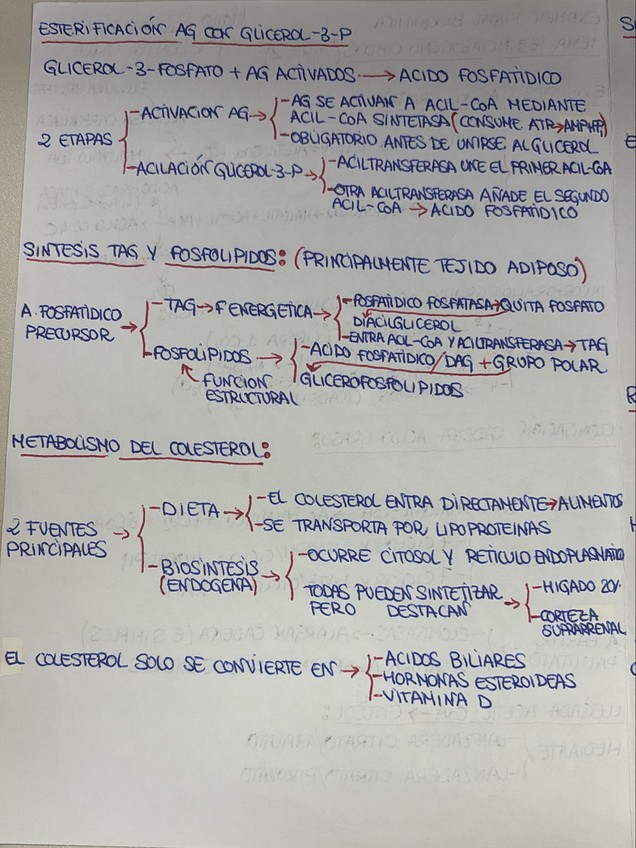 ESTERIFICACIÓN AG CON GLICEROL-3-P
GLICEROL-3-FOSFATO + AG ACTIVADOS → ACIDO FOSFATIDICO
2 ETAPAS
-ACTIVACION AG →
-AG SE ACTIVAN A ACIL-COA MEDIANTE
ACIL-COA SINTETASA (CONSUME ATP→AMP+PPi)
-OBLIGATORIO ANTES DE UNIRSE AL GLICEROL
-ACILACIÓN GLICEROL-3-P →
-ACILTRANSFERASA UNE EL PRIMER ACIL-COA
-OTRA ACILTRANSFERASA AÑADE EL SEGUNDO
ACIL-COA → ACIDO FOSFATIDICO
SINTESIS TAG Y FOSFOLIPIDOS: (PRINCIPALMENTE TEJIDO ADIPOSO)
A. FOSFATIDICO
PRECURSOR →
-TAG → F ENERGETICA →
-FOSFATIDICO FOSFATASA→QUITA FOSFATO
DIACILGLICEROL
-ENTRA ACIL-COA Y ACILTRANSFERASA → TAG
-FOSFOLIPIDOS →
FUNCION
ESTRUCTURAL
-ACIDO FOSFATIDICO/DAG + GRUPO POLAR
GLICEROFOSFOLIPIDOS
METABOLISMO DEL COLESTEROL:
2 FUENTES
PRINCIPALES →
-DIETA →
-EL COLESTEROL ENTRA DIRECTAMENTE→ALIMENTOS
-SE TRANSPORTA POR LIPOPROTEINAS
-BIOSINTESIS
(ENDOGENA) →
-OCURRE CITOSOL Y RETICULO ENDOPLASMATICO
TODAS PUEDEN SINTETIZAR
PERO DESTACAN →
-HIGADO 20%
-CORTEZA
SUPRARRENAL
EL COLESTEROL SOLO SE CONVIERTE EN →
-ACIDOS BILIARES
-HORMONAS ESTEROIDEAS
-VITAMINA D